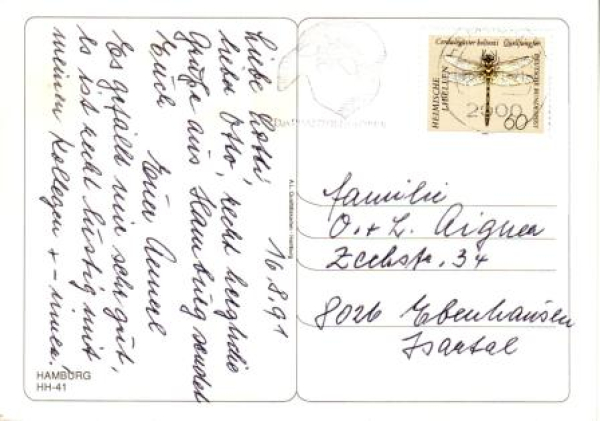 16.8.91
Liebe Lotti,
lieber Otto, recht herzliche
Grüße aus Hamburg sendet
Euch
Eure Annerl
Es gefällt mir sehr gut,
es ist recht lustig mit
meinen Kollegen + -innen.
HAMBURG
HH-41
Cordulegaster bidentati Quelljungfer
HEIMISCHE
LIBELLEN
DEUTSCHE BUNDESPOST
60
2000
Familie
O. + L. Aigner
Zechstr. 34
8026 Ebenhausen
Isartal